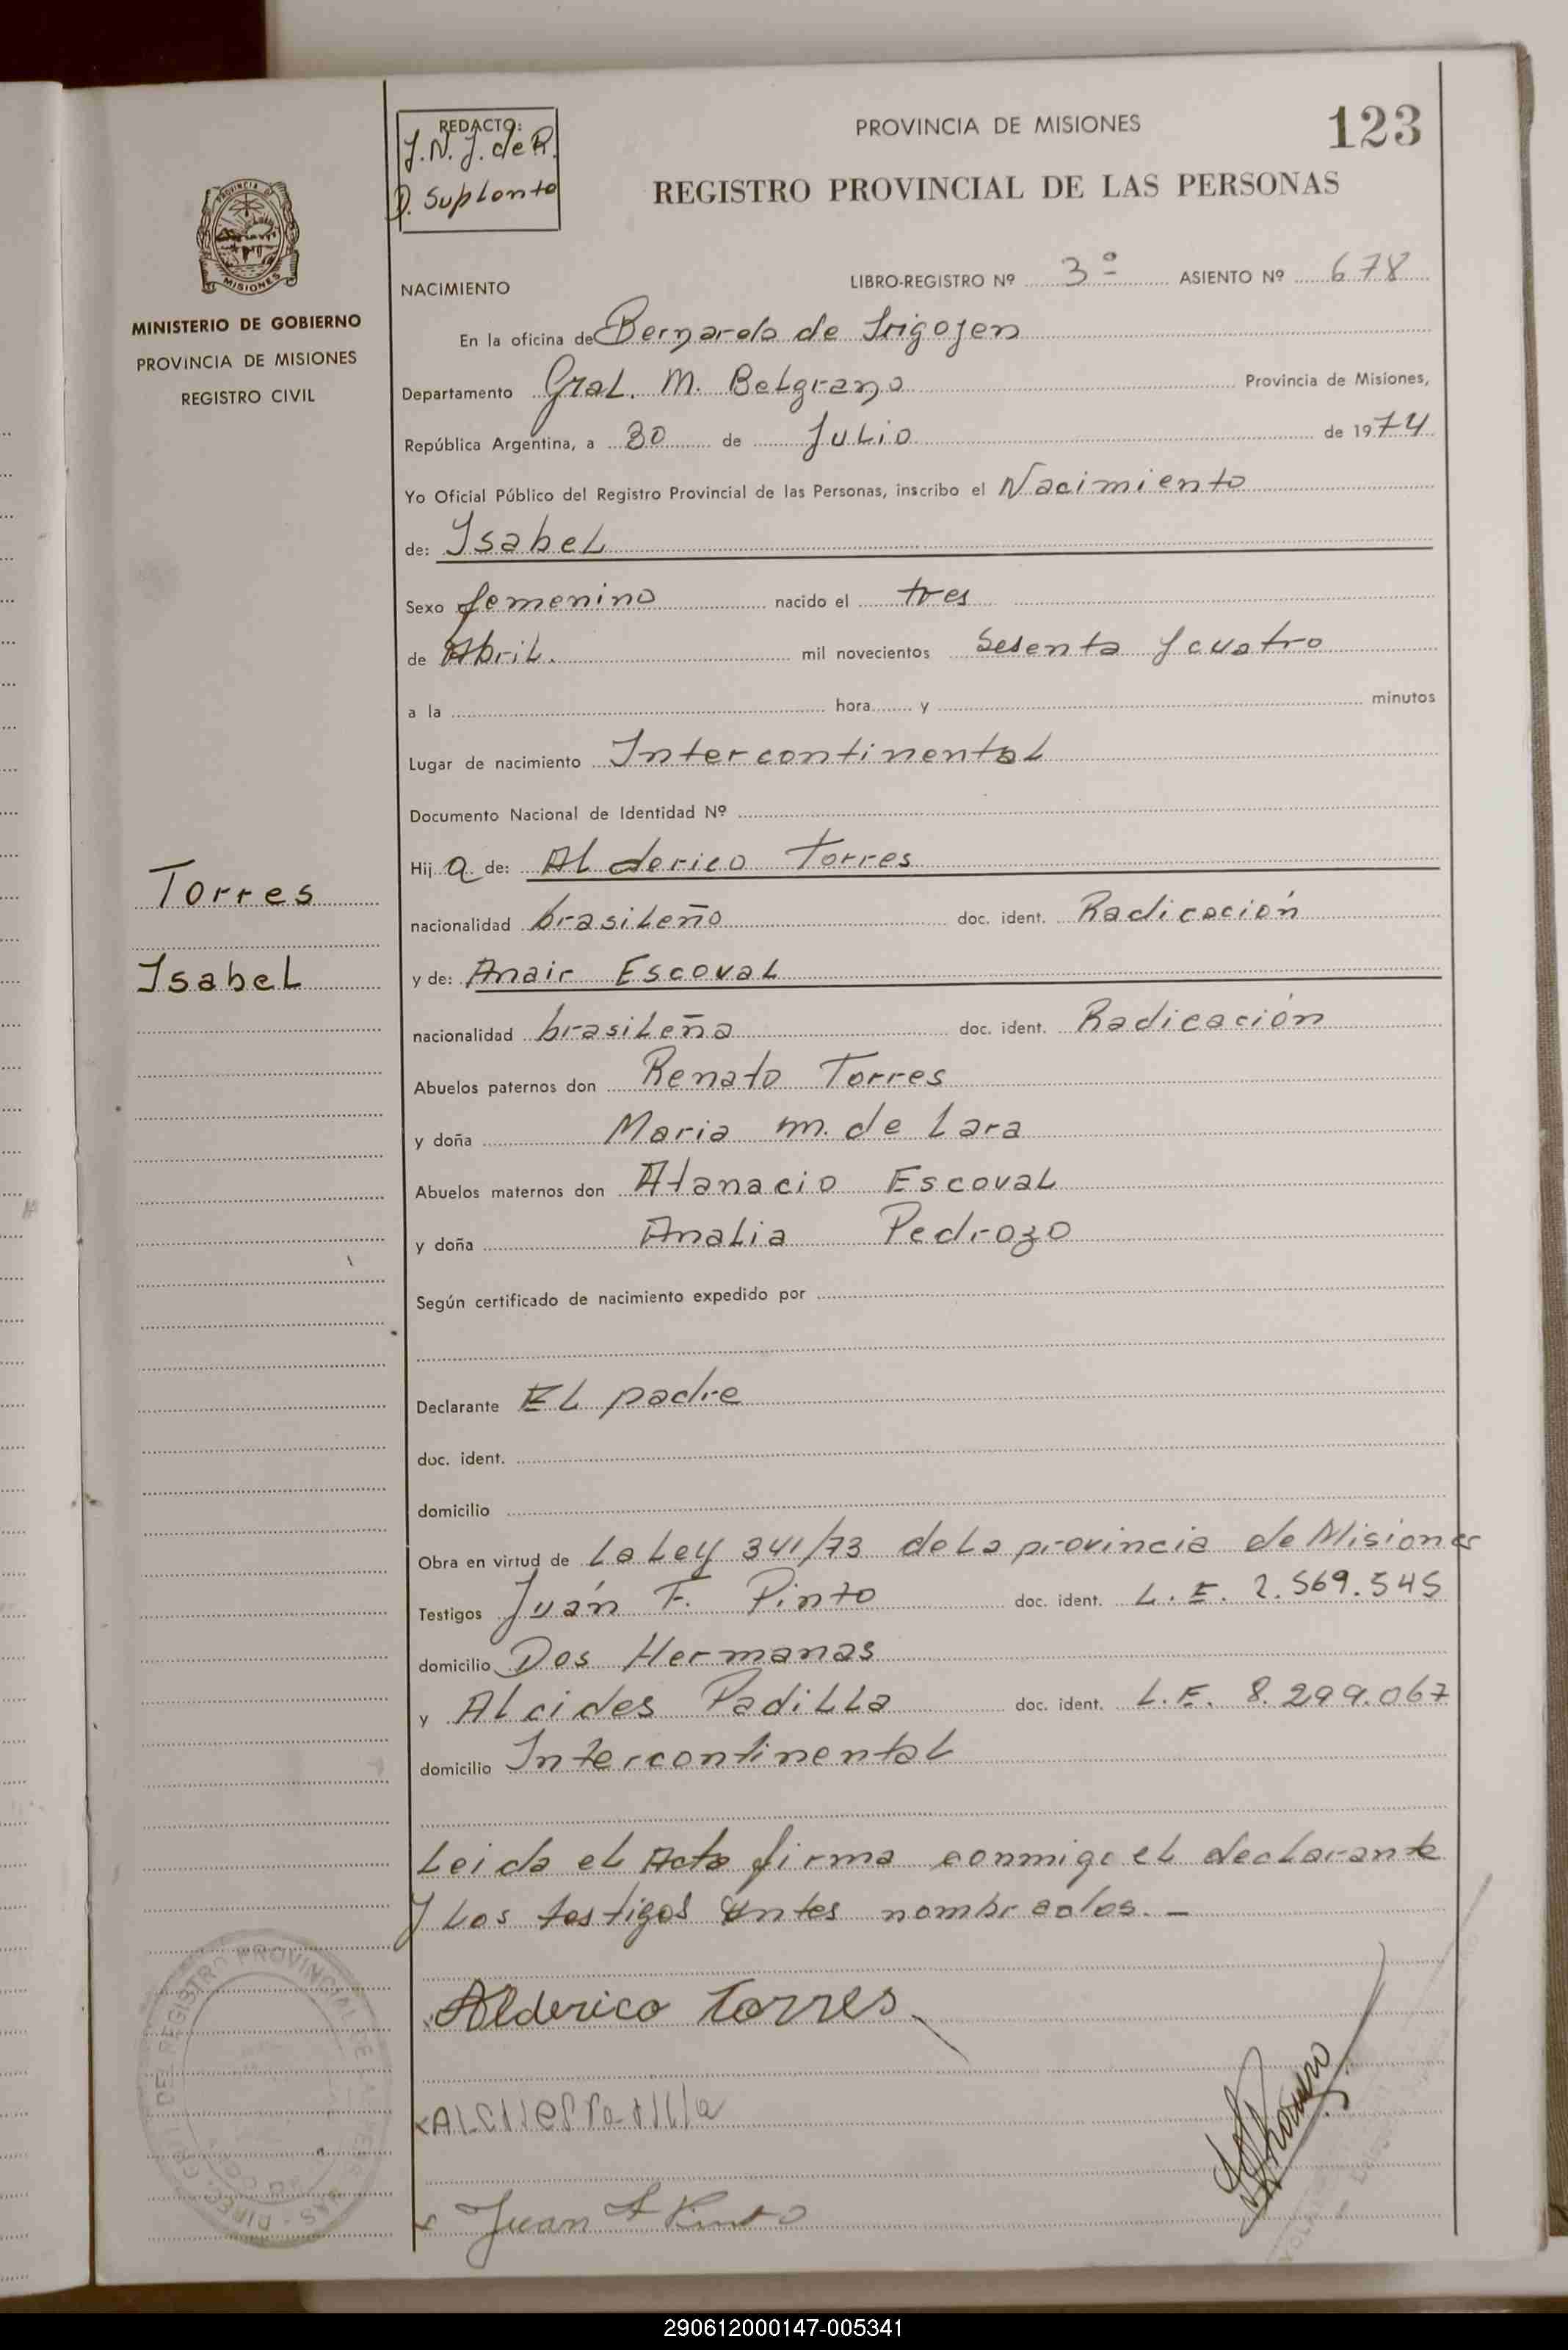 REDACTO:
J. N. J. de R.
D. Suplente
PROVINCIA DE MISIONES
123
REGISTRO PROVINCIAL DE LAS PERSONAS
PROVINCIA DE
MISIONES
MINISTERIO DE GOBIERNO
PROVINCIA DE MISIONES
REGISTRO CIVIL
NACIMIENTO
LIBRO-REGISTRO Nº 3º ASIENTO Nº 678
En la oficina de Bernardo de Irigoyen
Departamento Gral. M. Belgrano Provincia de Misiones,
República Argentina, a 30 de Julio de 1974
Yo Oficial Público del Registro Provincial de las Personas, inscribo el Nacimiento
de: Isabel
Sexo femenino nacido el tres
de Abril. mil novecientos Sesenta y cuatro
a la hora y minutos
Lugar de nacimiento Intercontinental
Documento Nacional de Identidad Nº
Hij a de: Alderico Torres
Torres
nacionalidad brasileño doc. ident. Radicación
Isabel
y de: Anair Escoval
nacionalidad brasileña doc. ident. Radicación
Abuelos paternos don Renato Torres
y doña Maria M. de Lara
Abuelos maternos don Atanacio Escoval
y doña Analia Pedrozo
Según certificado de nacimiento expedido por
Declarante El padre
doc. ident.
domicilio
Obra en virtud de La Ley 341/73 de La provincia de Misiones
Testigos Juán F. Pinto doc. ident. L. E. 2.569.545
domicilio Dos Hermanas
y Alcides Padilla doc. ident. L.E. 8.299.067
domicilio Intercontinental
Leida el Acta firma conmigo el declarante
y los testigos antes nombrados. -
Alderico Torres
Juan F Pinto
290612000147-005341